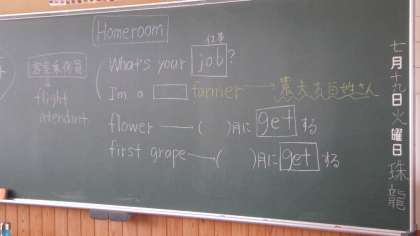 Homeroom
仕事
What's your job?
I'm a farmer → 農夫 お百姓さん
客室乗務員
flight
atendant
flower — ( )月に get する
first grape — ( )月に get する
七月十九日火曜日 珠龍